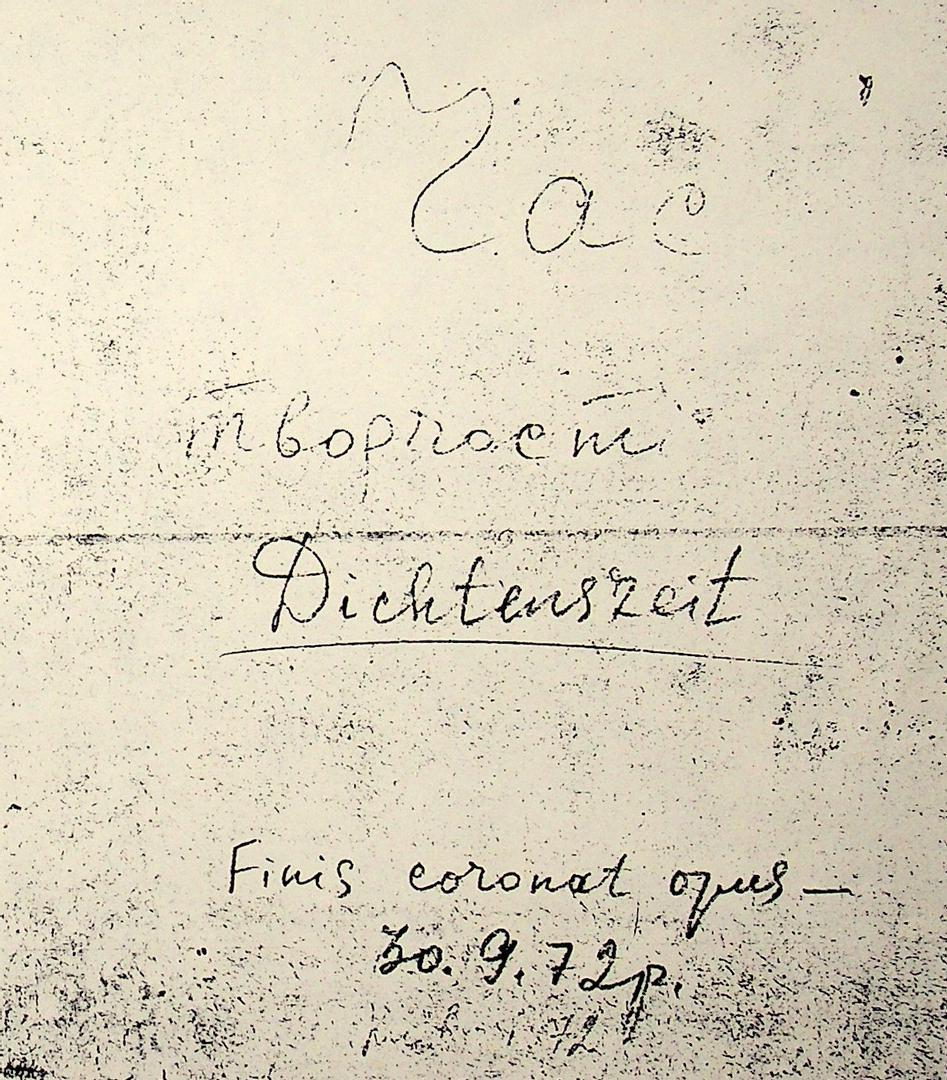 Час
творчості
Dichtenszeit
Finis coronat opus —
30. 9. 72 р.
72